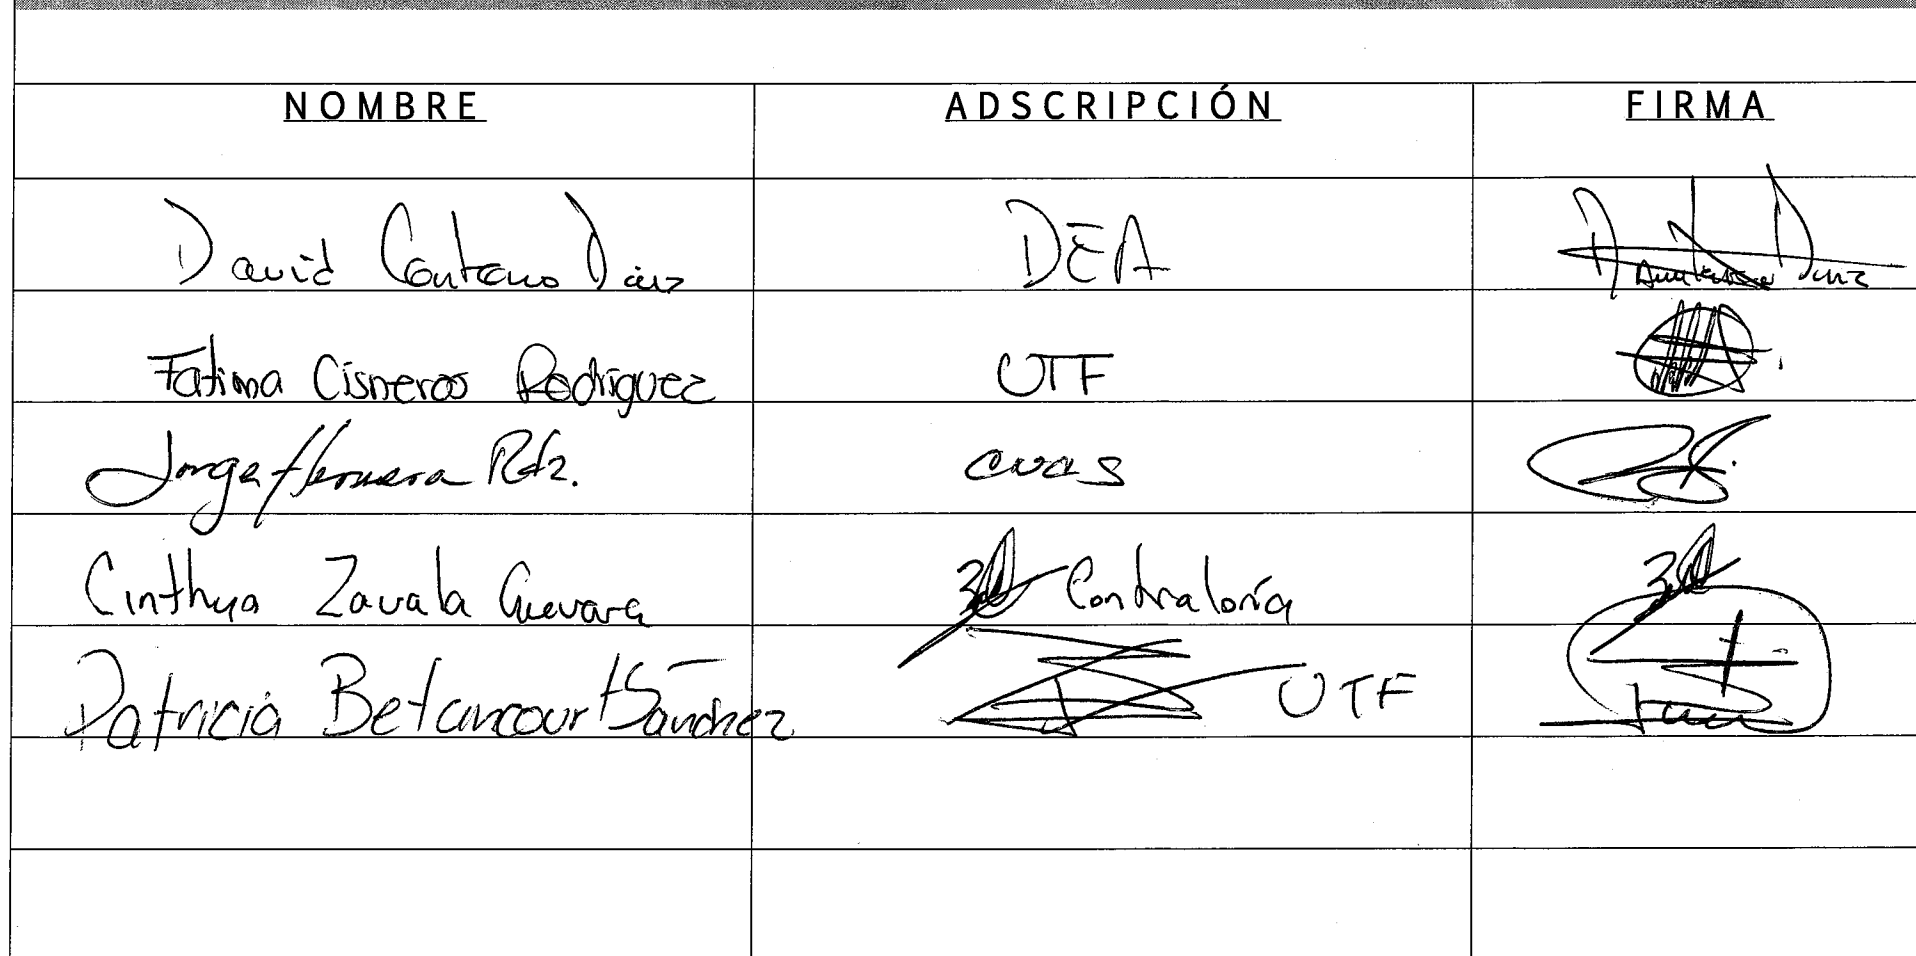 NOMBRE ADSCRIPCIÓN FIRMA
David Díaz DEA
Fatima Cisneros Rodriguez UTF
Jorge Herrera Rdz.
Cinthya Zavala Guevara Contraloría
Patricia Betancourt Sánchez UTF